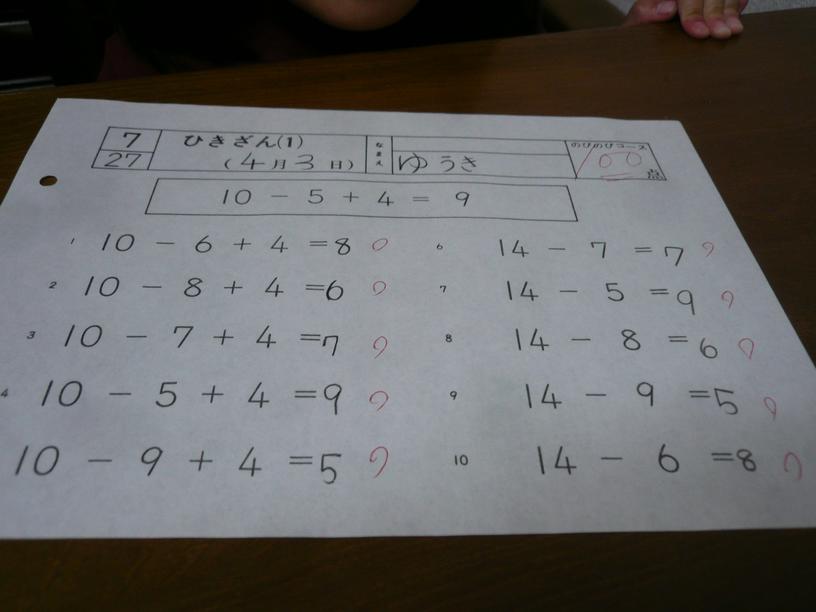 7 ひきざん(1) なまえ のびのびコース
27 (4月3日) ゆうき 100点
10 - 5 + 4 = 9
1 10 - 6 + 4 =8
2 10 - 8 + 4 =6
3 10 - 7 + 4 =7
4 10 - 5 + 4 =9
10 - 9 + 4 =5
6 14 - 7 =7
7 14 - 5 =9
8 14 - 8 =6
9 14 - 9 =5
10 14 - 6 =8